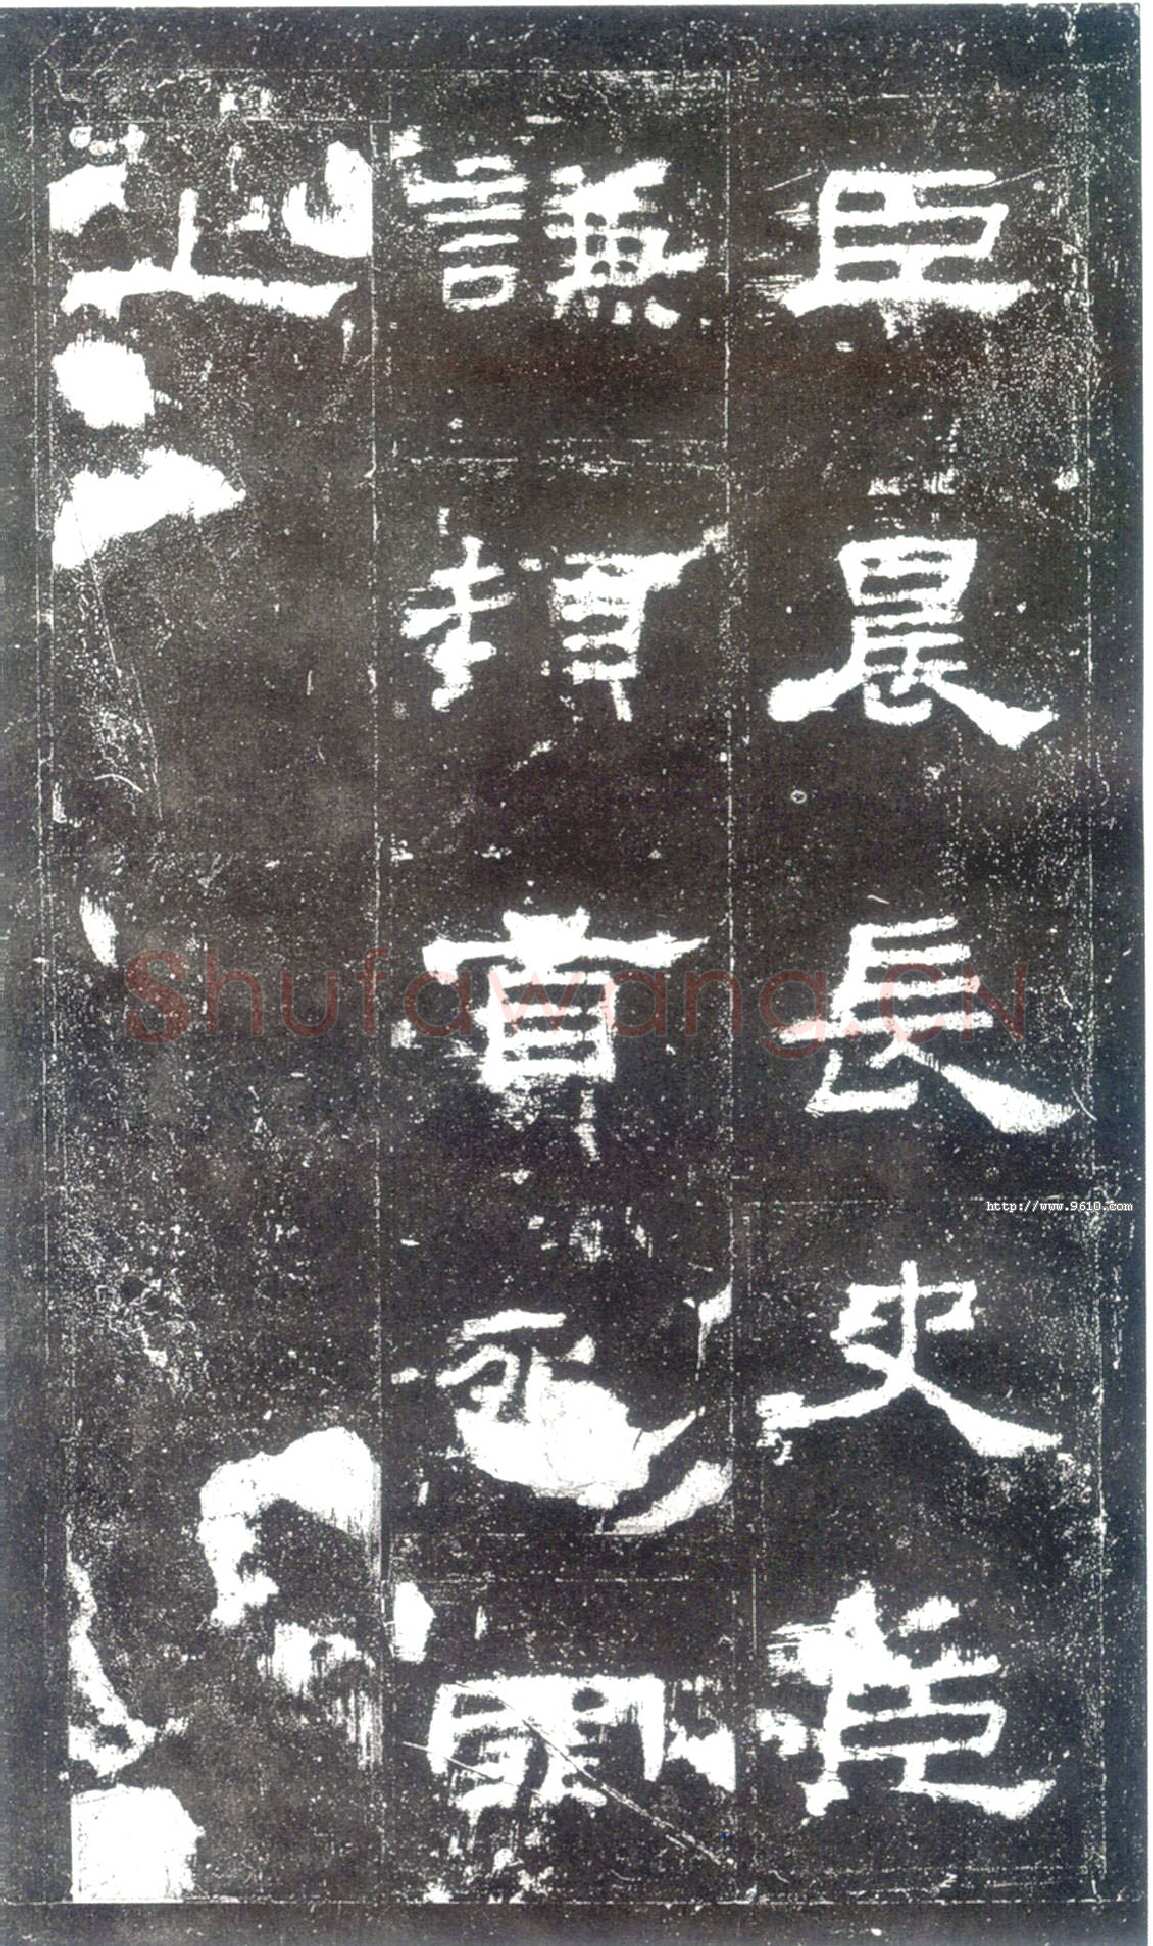 臣晨長史臣
謙頓首死罪
上
Shufawang.CN
http://www.9610.com